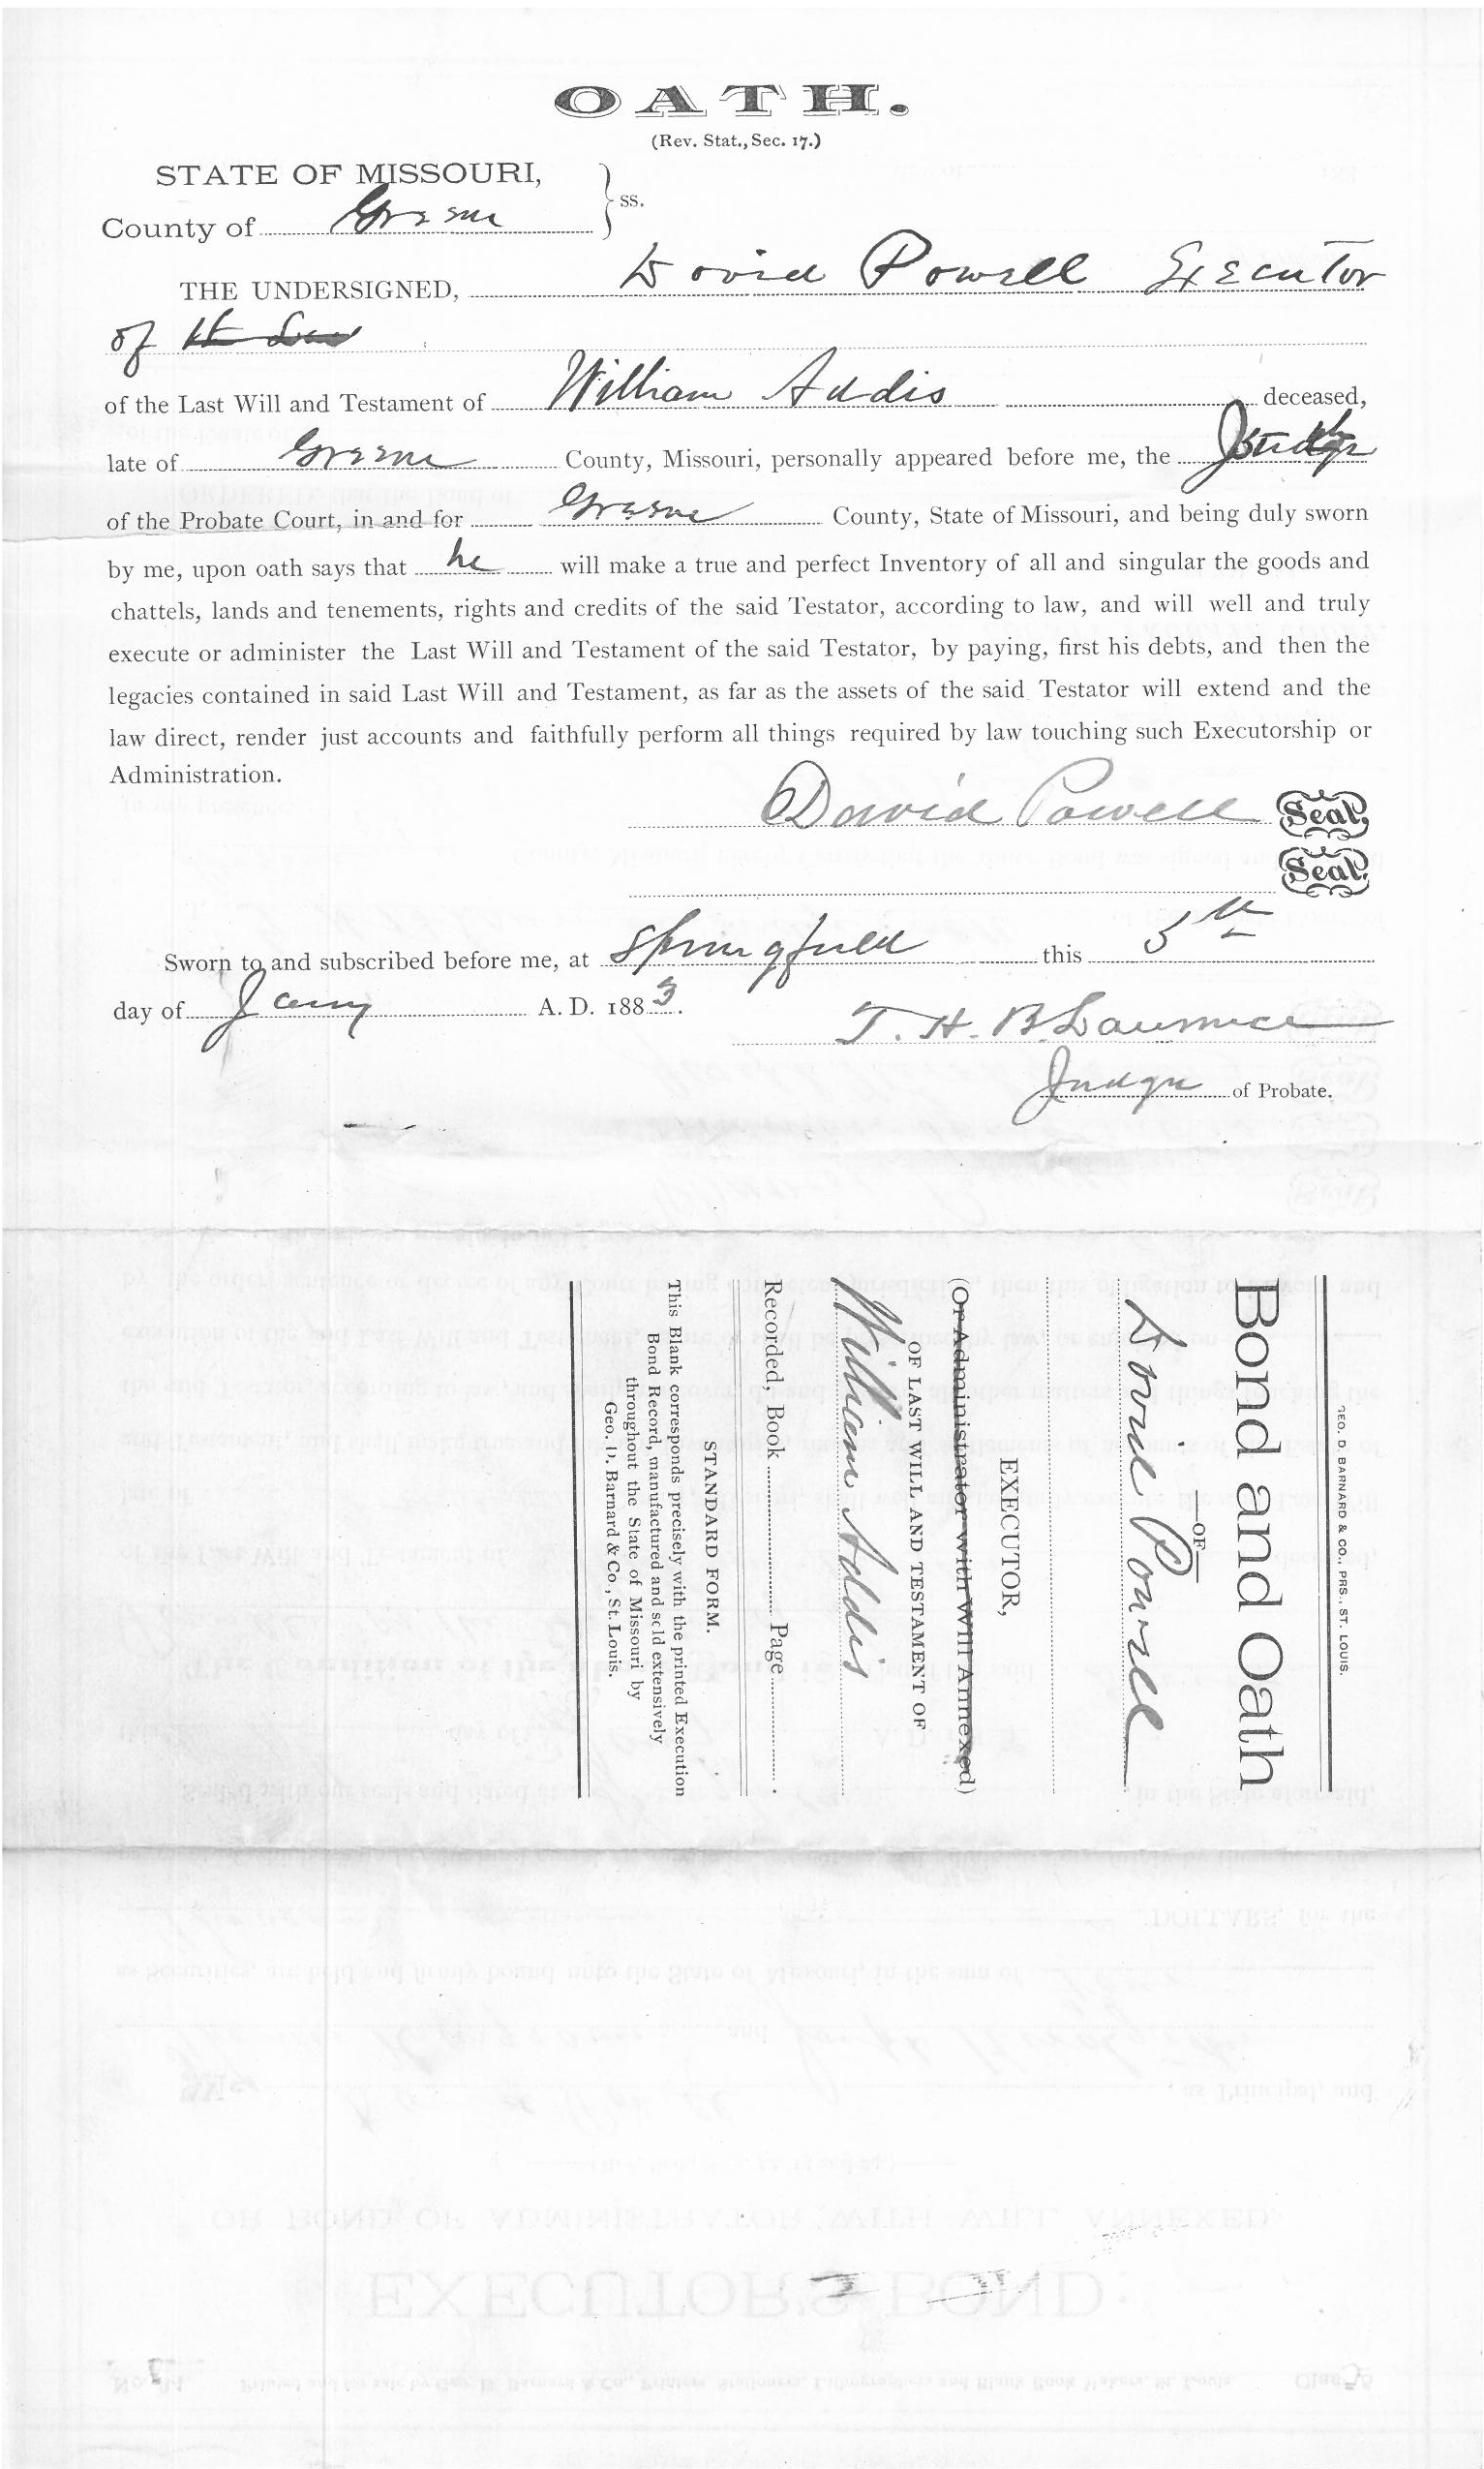 OATH.
(Rev. Stat., Sec. 17.)
STATE OF MISSOURI,
County of Greene } ss.
THE UNDERSIGNED, David Powell Executor
of
of the Last Will and Testament of William Addis deceased,
late of Greene County, Missouri, personally appeared before me, the Judge
of the Probate Court, in and for Greene County, State of Missouri, and being duly sworn
by me, upon oath says that he will make a true and perfect Inventory of all and singular the goods and
chattels, lands and tenements, rights and credits of the said Testator, according to law, and will well and truly
execute or administer the Last Will and Testament of the said Testator, by paying, first his debts, and then the
legacies contained in said Last Will and Testament, as far as the assets of the said Testator will extend and the
law direct, render just accounts and faithfully perform all things required by law touching such Executorship or
Administration.
David Powell Seal.
Seal.
Sworn to and subscribed before me, at Springfield this 5th
day of Jany A. D. 1883.
T. H. B. Lawrence
Judge of Probate.
GEO. D. BARNARD & CO., PRS., ST. LOUIS.
Bond and Oath
—OF—
David Powell
EXECUTOR,
(Or Administrator with Will Annexed)
OF LAST WILL AND TESTAMENT OF
William Addis
Recorded, Book Page .
STANDARD FORM.
This Blank corresponds precisely with the printed Execution
Bond Record, manufactured and sold extensively
throughout the State of Missouri by
Geo. D. Barnard & Co., St. Louis.